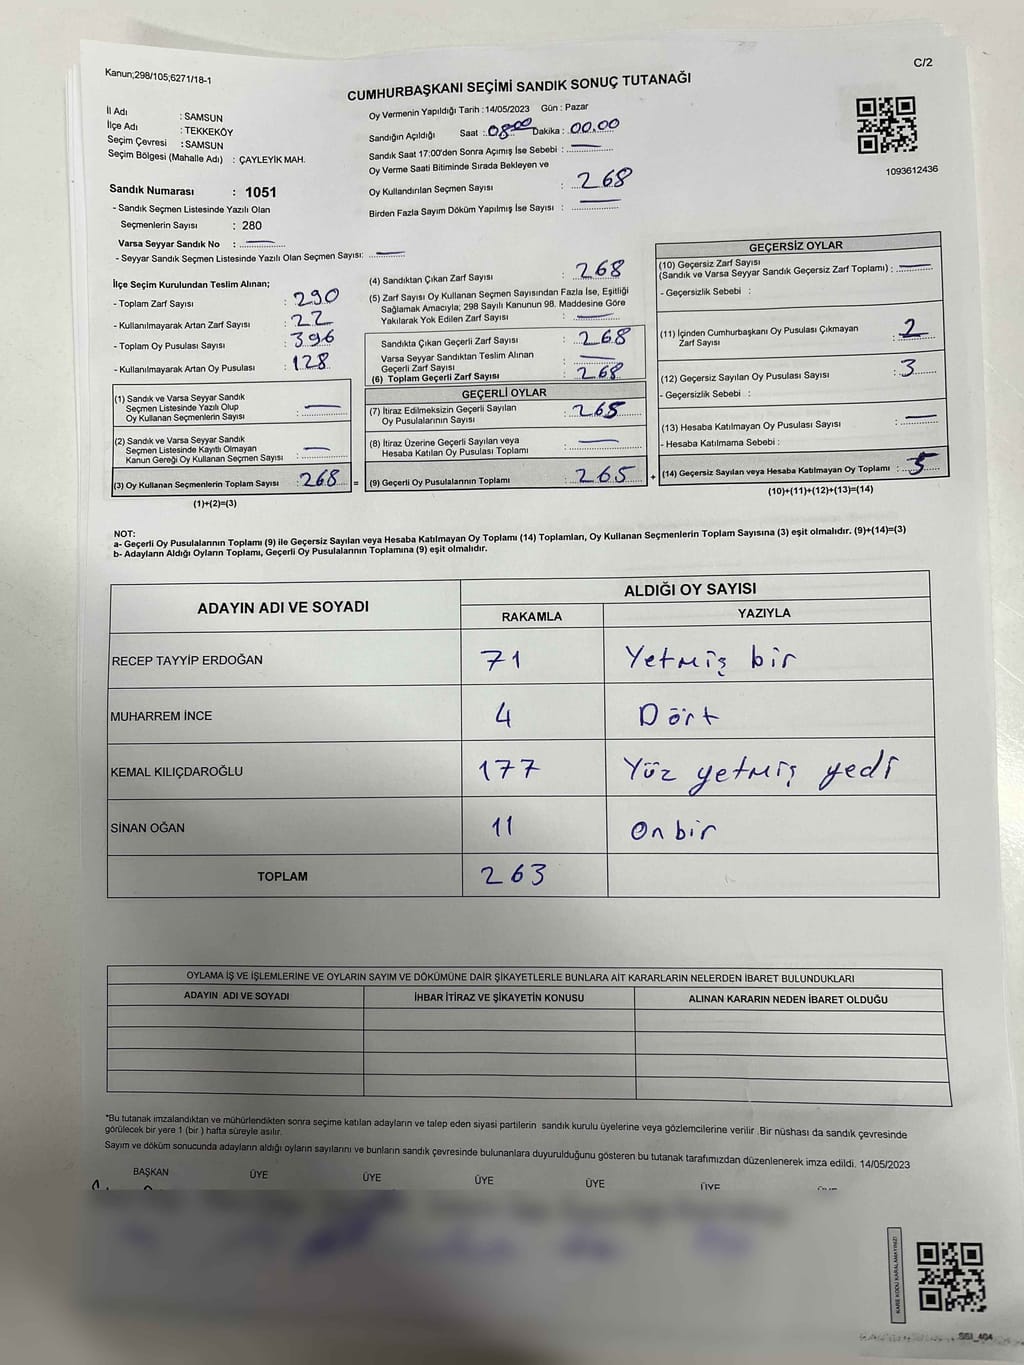 Kanun;298/105;6271/18-1
C/2
CUMHURBAŞKANI SEÇİMİ SANDIK SONUÇ TUTANAĞI
İl Adı : SAMSUN
İlçe Adı : TEKKEKÖY
Seçim Çevresi : SAMSUN
Seçim Bölgesi (Mahalle Adı) : ÇAYLEYİK MAH.
Sandık Numarası : 1051
- Sandık Seçmen Listesinde Yazılı Olan
Seçmenlerin Sayısı : 280
Varsa Seyyar Sandık No :
- Seyyar Sandık Seçmen Listesinde Yazılı Olan Seçmen Sayısı:
Oy Vermenin Yapıldığı Tarih : 14/05/2023 Gün : Pazar
Sandığın Açıldığı Saat : 08:00 Dakika : 00.00
Sandık Saat 17:00'den Sonra Açımış İse Sebebi :
Oy Verme Saati Bitiminde Sırada Bekleyen ve
Oy Kullandırılan Seçmen Sayısı : 268
Birden Fazla Sayım Döküm Yapılmış İse Sayısı :
1093612436
İlçe Seçim Kurulundan Teslim Alınan;
- Toplam Zarf Sayısı : 290
- Kullanılmayarak Artan Zarf Sayısı : 22
- Toplam Oy Pusulası Sayısı : 396
- Kullanılmayarak Artan Oy Pusulası : 128
(1) Sandık ve Varsa Seyyar Sandık
Seçmen Listesinde Yazılı Olup
Oy Kullanan Seçmenlerin Sayısı :
(2) Sandık ve Varsa Seyyar Sandık
Seçmen Listesinde Kayıtlı Olmayan
Kanun Gereği Oy Kullanan Seçmen Sayısı :
(3) Oy Kullanan Seçmenlerin Toplam Sayısı : 268 =
(1)+(2)=(3)
(4) Sandıktan Çıkan Zarf Sayısı : 268
(5) Zarf Sayısı Oy Kullanan Seçmen Sayısından Fazla İse, Eşitliği
Sağlamak Amacıyla; 298 Sayılı Kanunun 98. Maddesine Göre
Yakılarak Yok Edilen Zarf Sayısı :
Sandıkta Çıkan Geçerli Zarf Sayısı : 268
Varsa Seyyar Sandıktan Teslim Alınan
Geçerli Zarf Sayısı :
(6) Toplam Geçerli Zarf Sayısı : 268
GEÇERLİ OYLAR
(7) İtiraz Edilmeksizin Geçerli Sayılan
Oy Pusulalarının Sayısı : 265
(8) İtiraz Üzerine Geçerli Sayılan veya
Hesaba Katılan Oy Pusulası Toplamı :
(9) Geçerli Oy Pusulalarının Toplamı : 265 +
GEÇERSİZ OYLAR
(10) Geçersiz Zarf Sayısı
(Sandık ve Varsa Seyyar Sandık Geçersiz Zarf Toplamı) :
- Geçersizlik Sebebi :
(11) İçinden Cumhurbaşkanı Oy Pusulası Çıkmayan
Zarf Sayısı : 2
(12) Geçersiz Sayılan Oy Pusulası Sayısı : 3
- Geçersizlik Sebebi :
(13) Hesaba Katılmayan Oy Pusulası Sayısı :
- Hesaba Katılmama Sebebi :
(14) Geçersiz Sayılan veya Hesaba Katılmayan Oy Toplamı : 5
(10)+(11)+(12)+(13)=(14)
NOT:
a- Geçerli Oy Pusulalarının Toplamı (9) ile Geçersiz Sayılan veya Hesaba Katılmayan Oy Toplamı (14) Toplamları, Oy Kullanan Seçmenlerin Toplam Sayısına (3) eşit olmalıdır. (9)+(14)=(3)
b- Adayların Aldığı Oyların Toplamı, Geçerli Oy Pusulalarının Toplamına (9) eşit olmalıdır.
ADAYIN ADI VE SOYADI
ALDIĞI OY SAYISI
RAKAMLA YAZIYLA
RECEP TAYYİP ERDOĞAN 71 Yetmiş bir
MUHARREM İNCE 4 Dört
KEMAL KILIÇDAROĞLU 177 Yüz yetmiş yedi
SİNAN OĞAN 11 On bir
TOPLAM 263
OYLAMA İŞ VE İŞLEMLERİNE VE OYLARIN SAYIM VE DÖKÜMÜNE DAİR ŞİKAYETLERLE BUNLARA AİT KARARLARIN NELERDEN İBARET BULUNDUKLARI
ADAYIN ADI VE SOYADI İHBAR İTİRAZ VE ŞİKAYETİN KONUSU ALINAN KARARIN NEDEN İBARET OLDUĞU
*Bu tutanak imzalandıktan ve mühürlendikten sonra seçime katılan adayların ve talep eden siyasi partilerin sandık kurulu üyelerine veya gözlemcilerine verilir .Bir nüshası da sandık çevresinde
görülecek bir yere 1 (bir ) hafta süreyle asılır.
Sayım ve döküm sonucunda adayların aldığı oyların sayılarını ve bunların sandık çevresinde bulunanlara duyurulduğunu gösteren bu tutanak tarafımızdan düzenlenerek imza edildi. 14/05/2023
BAŞKAN ÜYE ÜYE ÜYE ÜYE ÜYE
KARE KODU KARALAMAYINIZ!